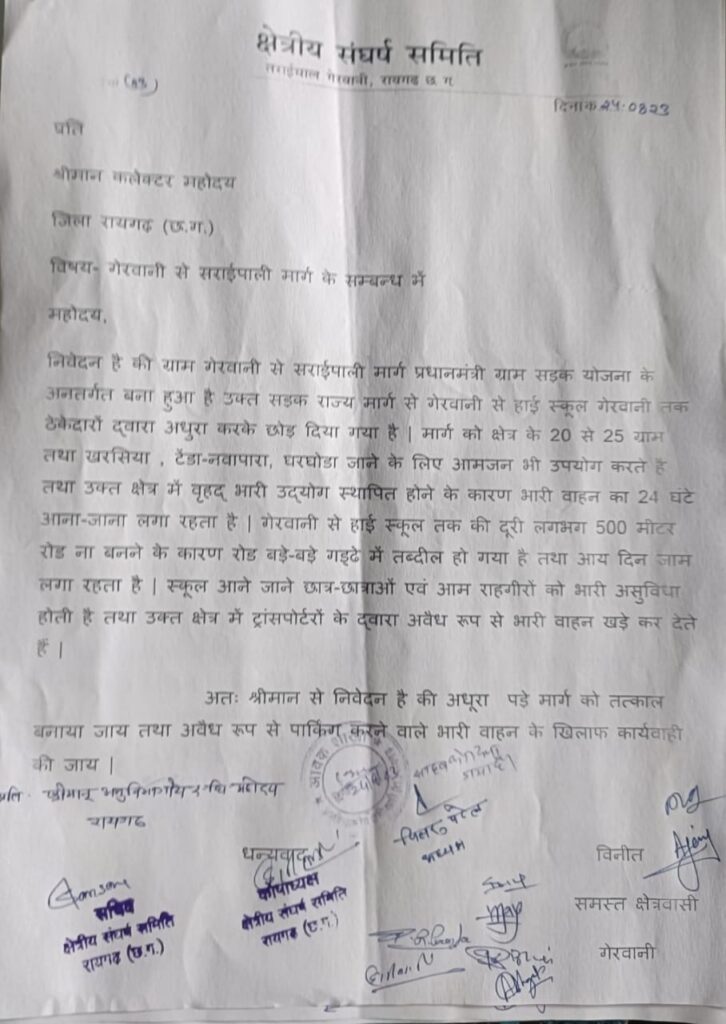 क्षेत्रीय संघर्ष समिति
सराईपाल गेरवानी, रायगढ छ ग
दिनाक 24.0823
प्रति
श्रीमान कलेक्टर महोदय
जिला रायगढ़ (छ.ग.)
विषय- गेरवानी से सराईपाली मार्ग के सम्बन्ध में
महोदय,
निवेदन है की ग्राम गेरवानी से सराईपाली मार्ग प्रधानमंत्री ग्राम सड़क योजना के
अनतर्गत बना हुआ है उक्त सड़क राज्य मार्ग से गेरवानी से हाई स्कूल गेरवानी तक
ठेकेदारों द्वारा अधुरा करके छोड़ दिया गया है | मार्ग को क्षेत्र के 20 से 25 ग्राम
तथा खरसिया , टेंडा-नवापारा, घरघोडा जाने के लिए आमजन भी उपयोग करते है
तथा उक्त क्षेत्र में वृहद् भारी उद्योग स्थापित होने के कारण भारी वाहन का 24 घंटे
आना-जाना लगा रहता है | गेरवानी से हाई स्कूल तक की दूरी लगभग 500 मीटर
रोड ना बनने के कारण रोड बड़े-बड़े गड्ढे में तब्दील हो गया है तथा आय दिन जाम
लगा रहता है | स्कूल आने जाने छात्र-छात्राओं एवं आम राहगीरों को भारी असुविधा
होती है तथा उक्त क्षेत्र में ट्रांसपोर्टरों के द्वारा अवैध रूप से भारी वाहन खड़े कर देते
हैं |
अतः श्रीमान से निवेदन है की अधूरा पड़े मार्ग को तत्काल
बनाया जाय तथा अवैध रूप से पार्किंग करने वाले भारी वाहन के खिलाफ कार्यवाही
की जाय |
प्रति - श्रीमान् महोदय
रायगढ
धन्यवाद
विनीत
समस्त क्षेत्रवासी
गेरवानी
सचिव
क्षेत्रीय संघर्ष समिति
रायगढ़ (छ.ग.)
कोषाध्यक्ष
क्षेत्रीय संघर्ष समिति
रायगढ़ (छ.ग.)